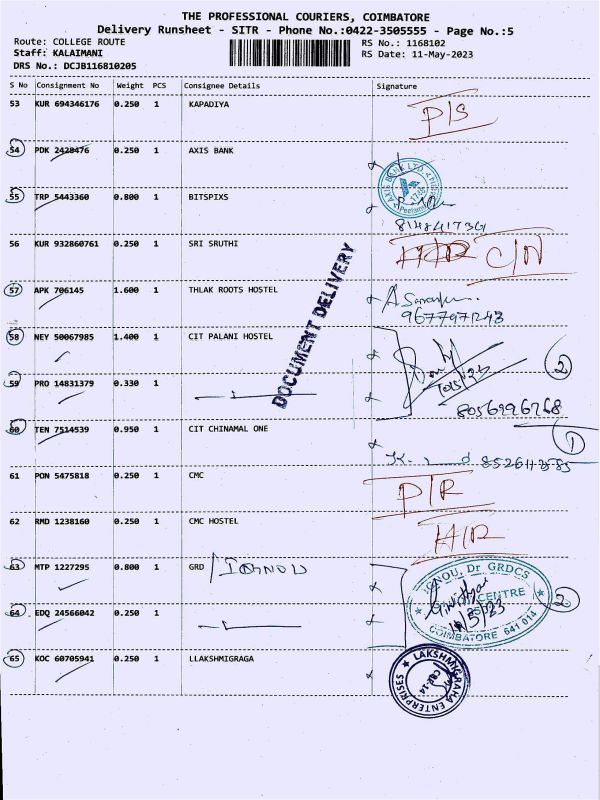 THE PROFESSIONAL COURIERS, COIMBATORE
Delivery Runsheet - SITR - Phone No.:0422-3505555 - Page No.:5
Route: COLLEGE ROUTE
RS No.: 1168102
Staff: KALAIMANI
RS Date: 11-May-2023
DRS No.: DCJB116810205
S No Consignment No Weight PCS Consignee Details Signature
53 KUR 694346176 0.250 1 KAPADIYA P/S
54 PDK 2428476 0.250 1 AXIS BANK
AXIS BANK LTD.
55 TRP 5443360 0.800 1 BITSPIXS
8148417361
56 KUR 932860761 0.250 1 SRI SRUTHI C/N
57 APK 706145 1.600 1 THLAK ROOTS HOSTEL
9677971243
DOCUMENT DELIVERY
58 NEY 50067985 1.400 1 CIT PALANI HOSTEL
2
59 PRO 14831379 0.330 1
8056996768
60 TEN 7514539 0.950 1 CIT CHINAMAL ONE
1
61 PON 5475818 0.250 1 CMC D/R
62 RMD 1238160 0.250 1 CMC HOSTEL H/R
63 MTP 1227295 0.800 1 GRD / IGNOU
IGNOU, Dr GRDCS
CENTRE
COIMBATORE 641 014
2
64 EDQ 24566042 0.250 1
65 KOC 60705941 0.250 1 LLAKSHMIGRAGA
LAKSHMIGRAHA ENTERPRISES
CBE-14